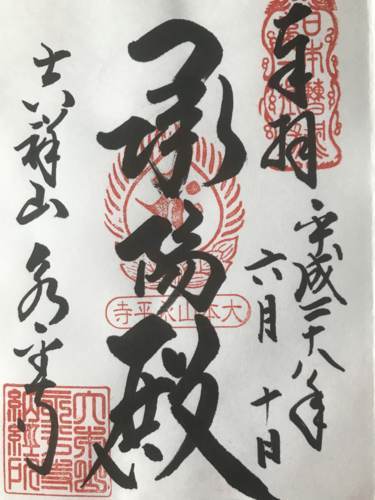 奉拝
平成二十八年
六月十日
承陽殿
大本山永平寺
吉祥山 永平寺
大本山
永平寺
納経所